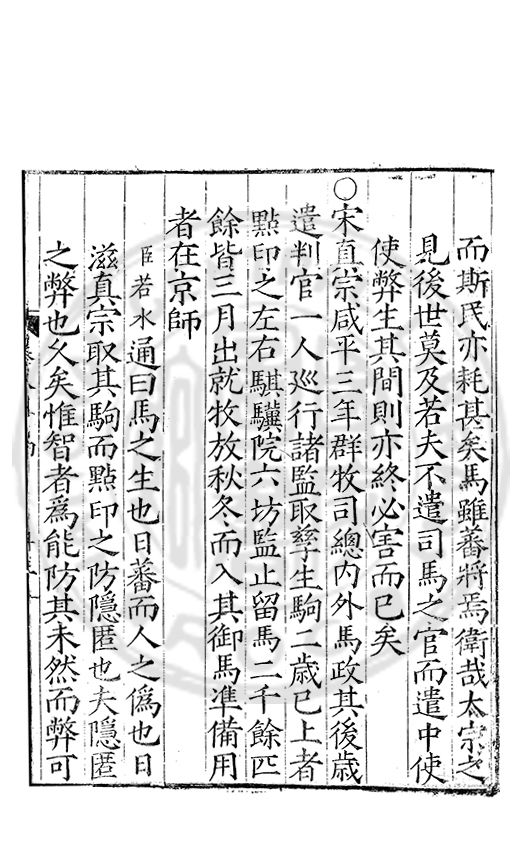 而斯民亦耗甚矣馬雖蕃將焉衛哉太宗之
見後世莫及若夫不遣司馬之官而遣中使
使弊生其間則亦終必害而已矣
○宋真宗咸平三年群牧司總內外馬政其後歲
遣判官一人巡行諸監取孳生駒二歲已上者
點印之左右騏驥院六坊監止留馬二千餘匹
餘皆三月出就牧放秋冬而入其御馬準備用
者在京師
臣若水通曰馬之生也日蕃而人之僞也日
滋真宗取其駒而點印之防隱匿也夫隱匿
之弊也久矣惟智者爲能防其未然而弊可